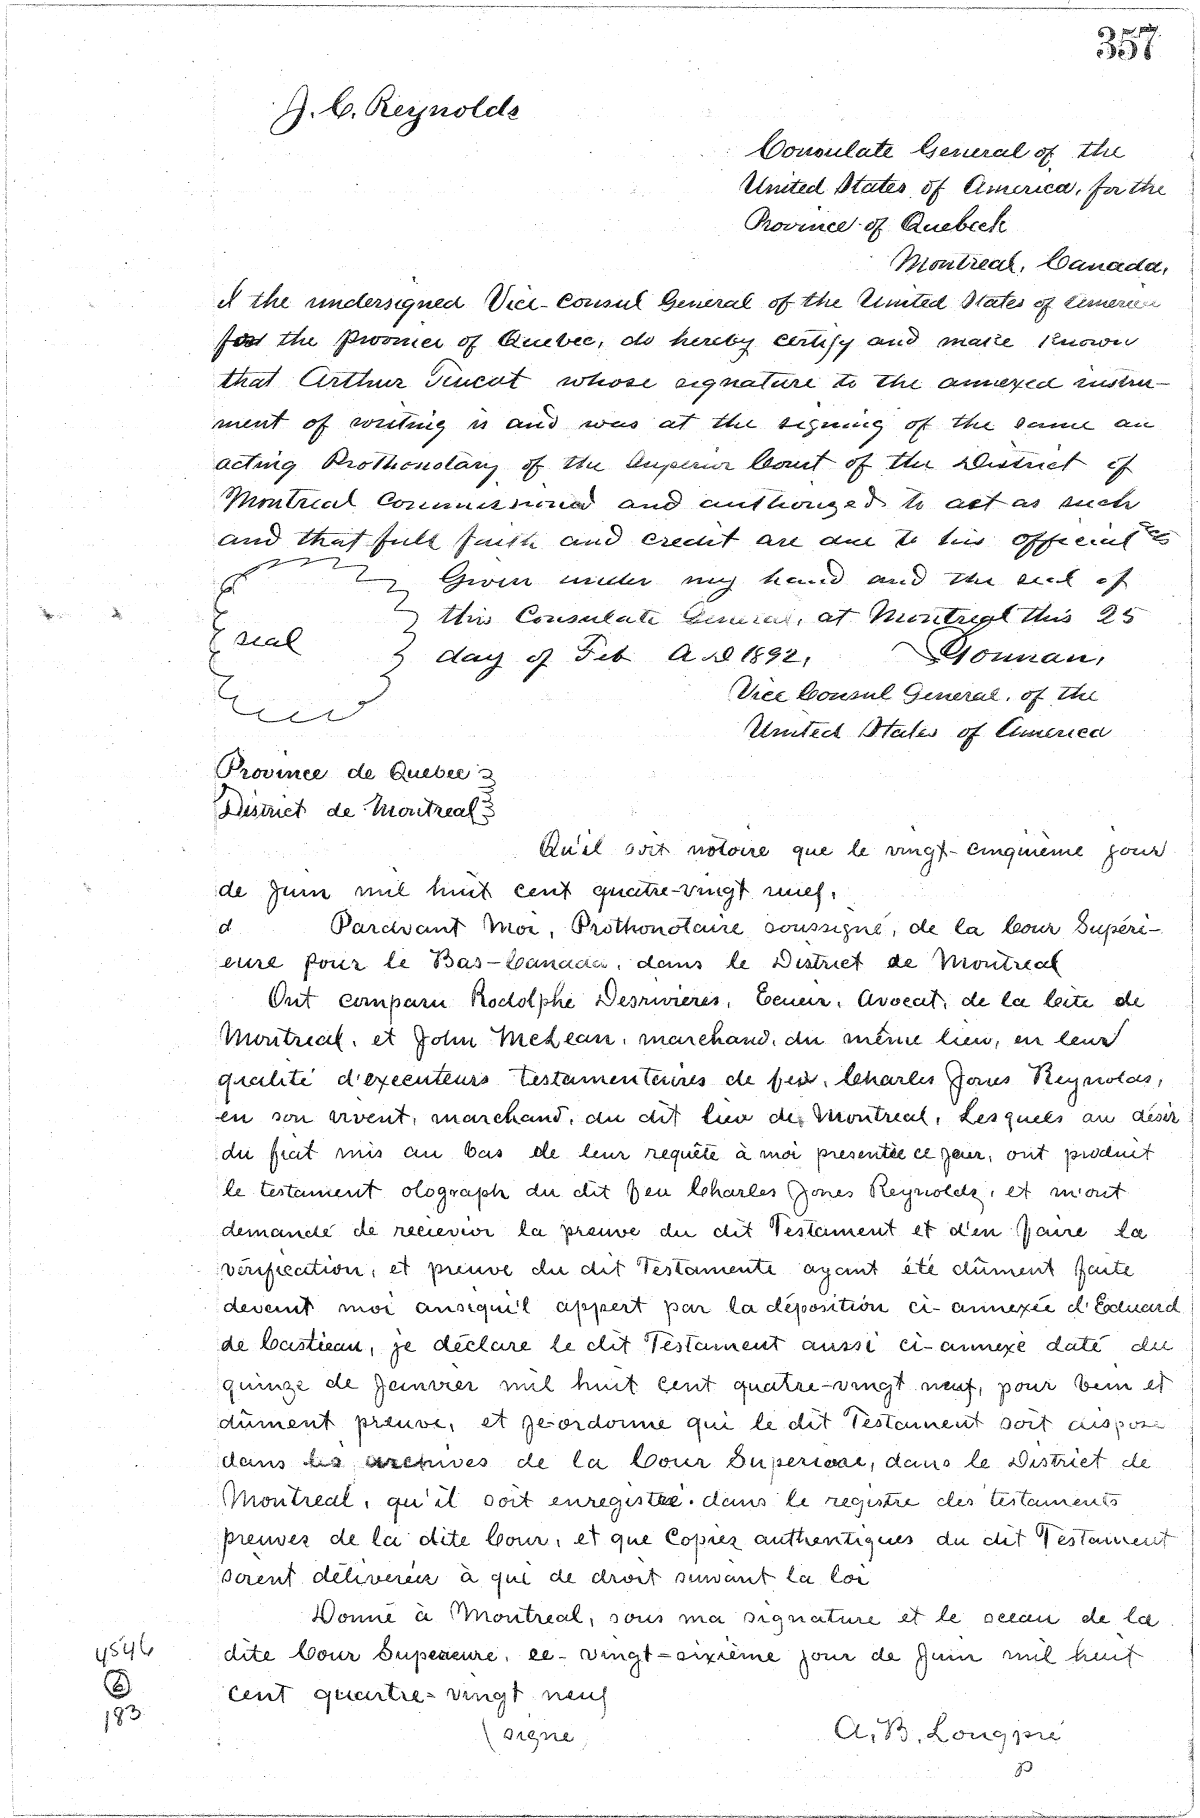 357
J. C. Reynolds
Consulate General of the
United States of America, for the
Province of Quebeck
Montreal, Canada,
I the undersigned Vice-Consul General of the United States of America
for the Province of Quebec, do hereby certify and make known
that Arthur whose signature to the annexed instru-
ment of writing is and was at the signing of the same an
acting Prothonotary of the Superior Court of the District of
Montreal Commissioned and authorized to act as such
and that full faith and credit are due to his official acts
Given under my hand and the seal of
this Consulate General, at Montreal this 25
seal
day of Feb A.D 1892, Gorman,
Vice Consul General. of the
United States of America
Province de Quebec
District de Montreal
Qu'il soit notoire que le vingt-cinquième jour
de Juin mil huit cent quatre-vingt neuf.
d Pardvant Moi, Prothonotaire soussigné, de la Cour Supéri-
eure pour le Bas-Canada, dans le District de Montreal
Ont comparu Rodolphe Desrivières, Ecueir, Avocat, de la Cite de
Montreal, et John McLean, marchand, du même lieu, en leur
qualité d'executeurs testamenteires de feu, Charles Jones Reynolds,
en son vivent, marchand, du dit lieu de Montreal, Lesquels au désir
du fiat mis au bas de leur requête à moi presentée ce jour, ont produit
le testament olograph du dit feu Charles Jones Reynolds, et m'ont
demandé de recievior la preuve du dit Testament et d'en faire la
vérification, et preuve du dit Testamente ayant été dûment faite
devant moi ansiqu'il appert par la déposition ci-annexée d'Eduard
de Castieau, je déclare le dit Testament aussi ci-annexé daté du
quinze de Janvier mil huit cent quatre-vingt neuf, pour bein et
dûment preuve, et je ordonne qui le dit Testament soit dispose
dans les archives de la Cour Superieure, dans le District de
Montreal, qu'il soit enregistré dans le registre des testaments
preuves de la dite Cour, et que Copies authentiques du dit Testament
soient déliverées à qui de droit suivant la loi
Donné à Montreal, sous ma signature et le sceau de la
dite Cour Superieure, ce-vingt-sixième jour de Juin mil huit
cent quartre-vingt neuf
4546
6
183
(signe A. B. Longpré
p